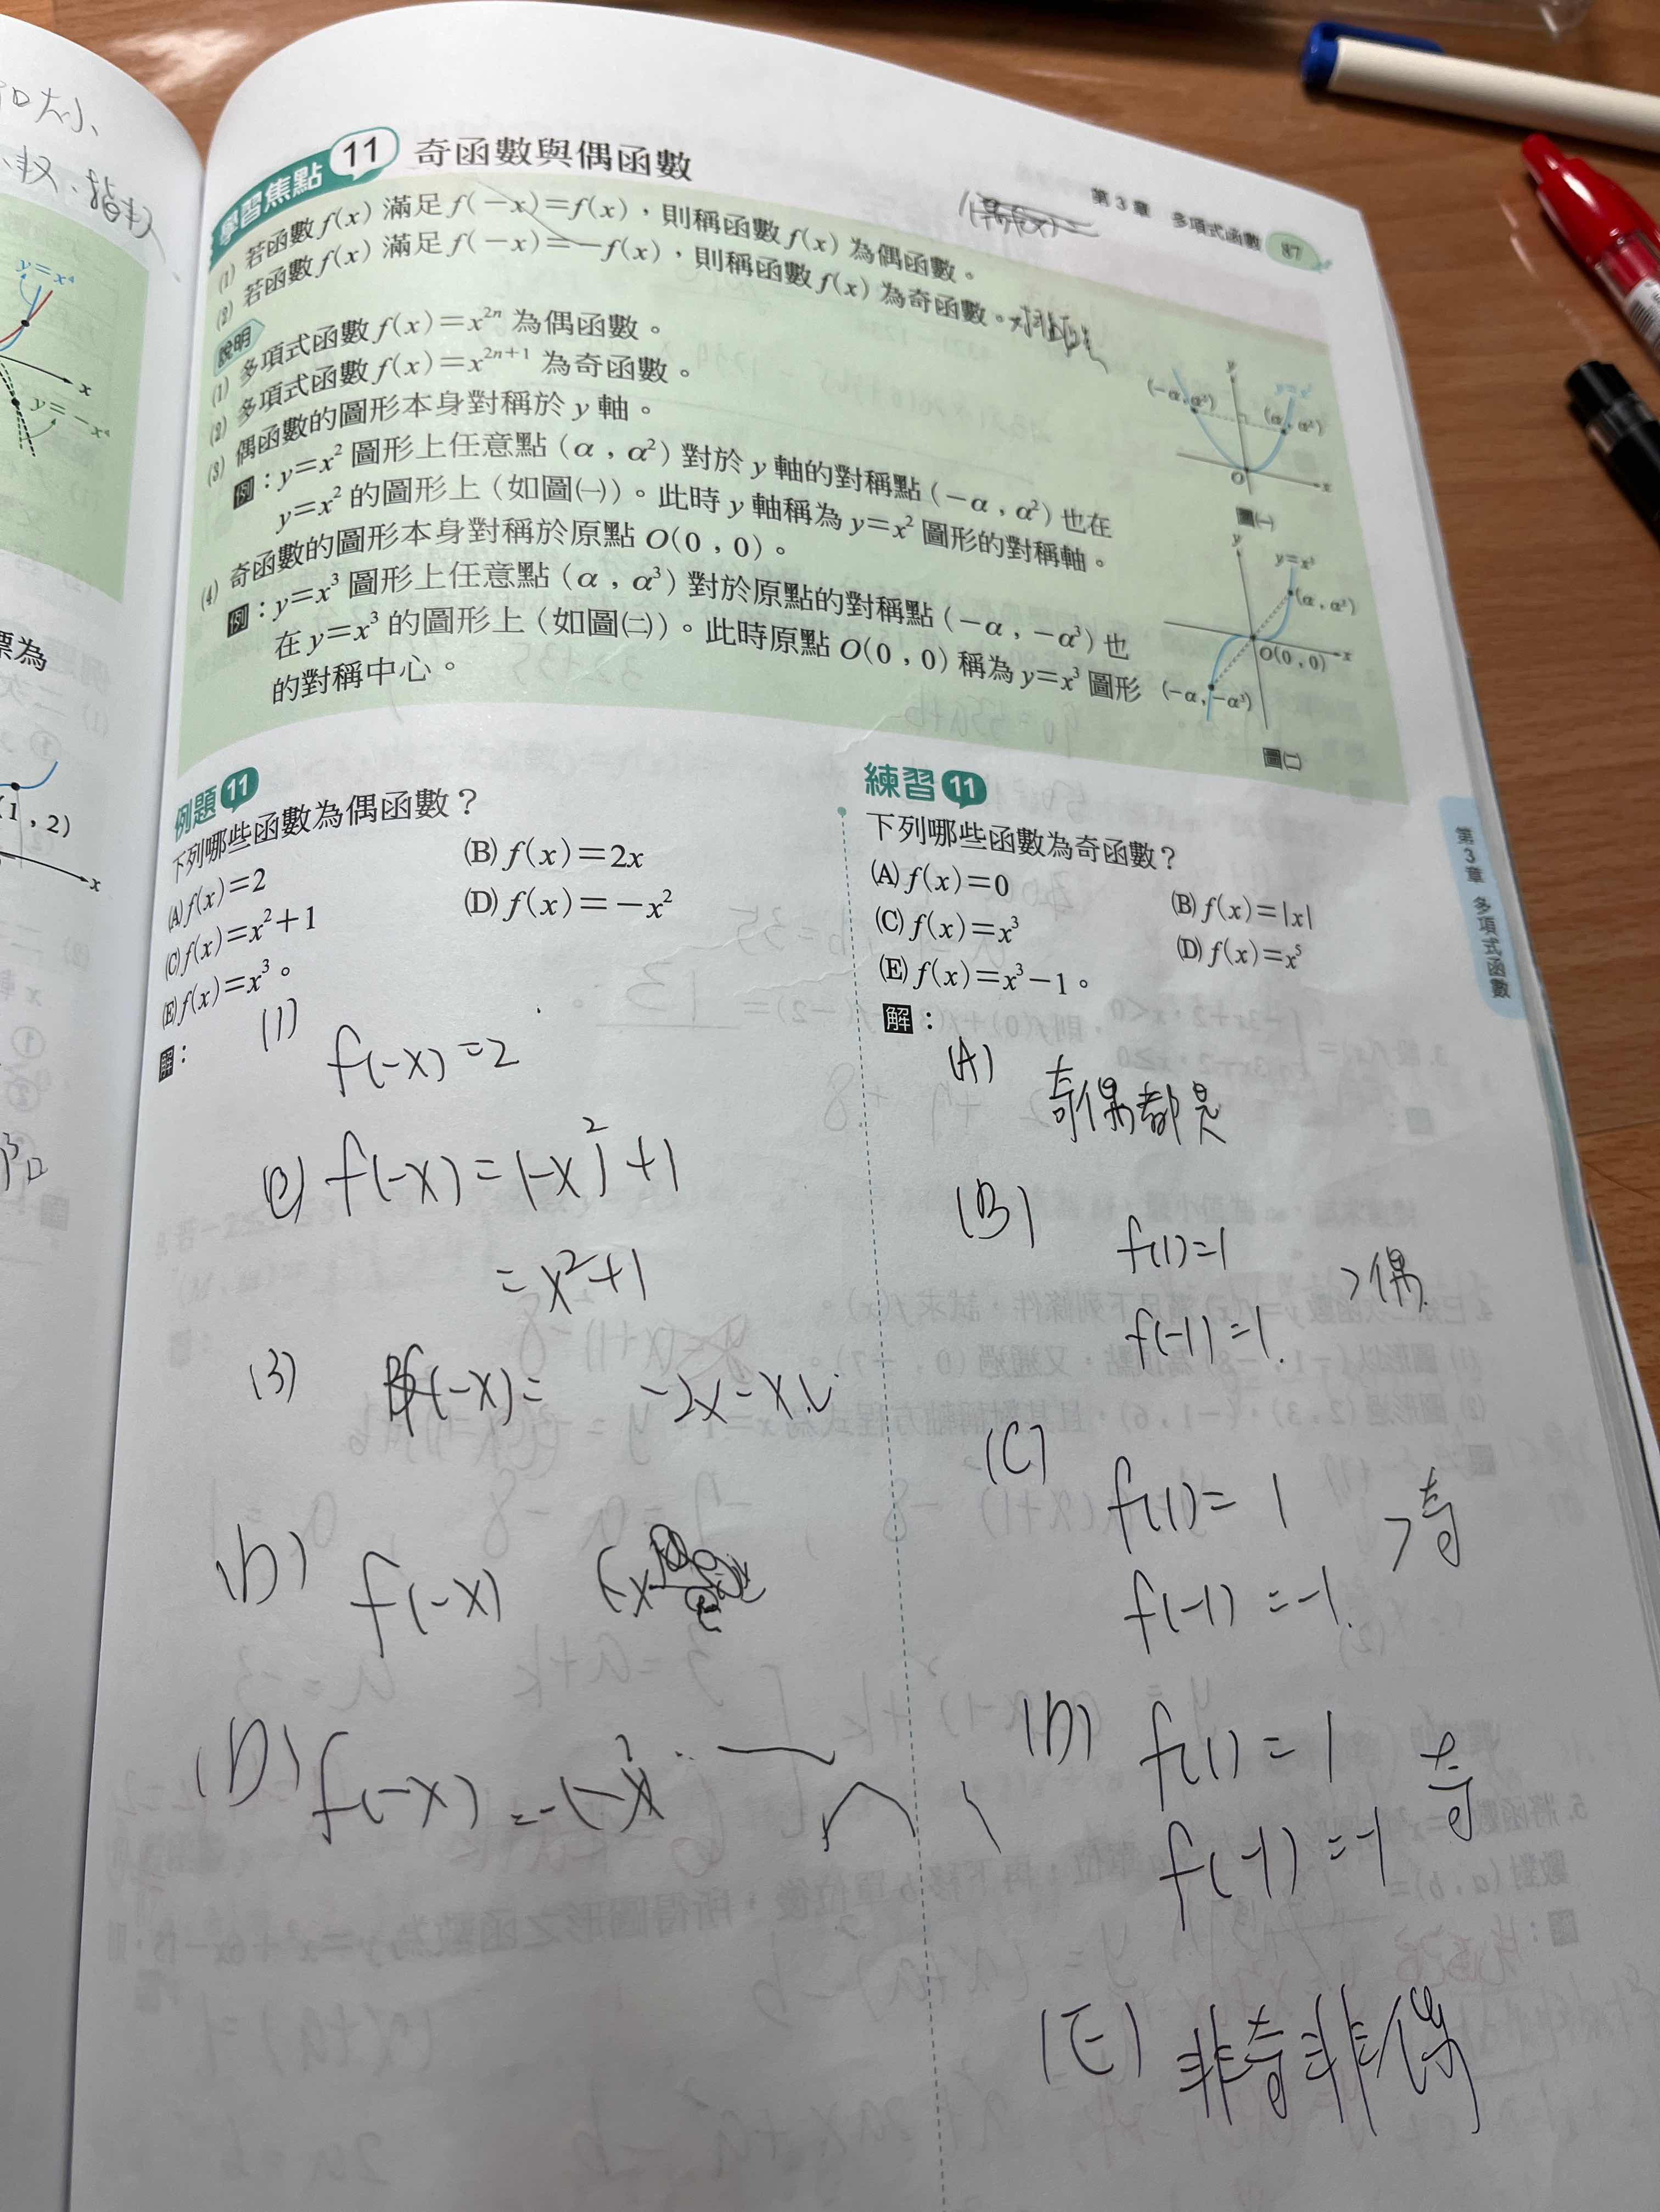 第3章 多項式函數 87
學習焦點 11 奇函數與偶函數
(1) 若函數 f(x) 滿足 f(−x)=f(x),則稱函數 f(x) 為偶函數。
(2) 若函數 f(x) 滿足 f(−x)=−f(x),則稱函數 f(x) 為奇函數。
說明
(1) 多項式函數 f(x)=x²ⁿ 為偶函數。
(2) 多項式函數 f(x)=x²ⁿ⁺¹ 為奇函數。
(3) 偶函數的圖形本身對稱於 y 軸。
例:y=x² 圖形上任意點 (α , α²) 對於 y 軸的對稱點 (−α , α²) 也在
y=x² 的圖形上(如圖㈠)。此時 y 軸稱為 y=x² 圖形的對稱軸。
(4) 奇函數的圖形本身對稱於原點 O(0 , 0)。
例:y=x³ 圖形上任意點 (α , α³) 對於原點的對稱點 (−α , −α³) 也
在 y=x³ 的圖形上(如圖㈡)。此時原點 O(0 , 0) 稱為 y=x³ 圖形
的對稱中心。
y
(−α, α²)
y=x²
(α, α²)
O
x
圖㈠
y
y=x³
(α, α³)
O(0, 0)
x
(−α, −α³)
圖㈡
例題 11
下列哪些函數為偶函數?
(A) f(x)=2
(B) f(x)=2x
(C) f(x)=x²+1
(D) f(x)=−x²
(E) f(x)=x³。
解:
(1)
f(-x)=2
(C) f(-x)=(-x)²+1
=x²+1
(3) f(-x)= -2x
(D) f(-x)
(D) f(-x)=-(-x)²
練習 11
下列哪些函數為奇函數?
(A) f(x)=0
(B) f(x)=|x|
(C) f(x)=x³
(D) f(x)=x⁵
(E) f(x)=x³−1。
解:
(A) 奇偶都是
(B)
f(1)=1
>偶
f(-1)=1.
(C)
f(1)=1
>奇
f(-1)=-1.
(D) f(1)=1
奇
f(-1)=-1
(E) 非奇非偶
第3章 多項式函數
y=x⁴
x
y=−x⁴
票為
1 , 2)
x